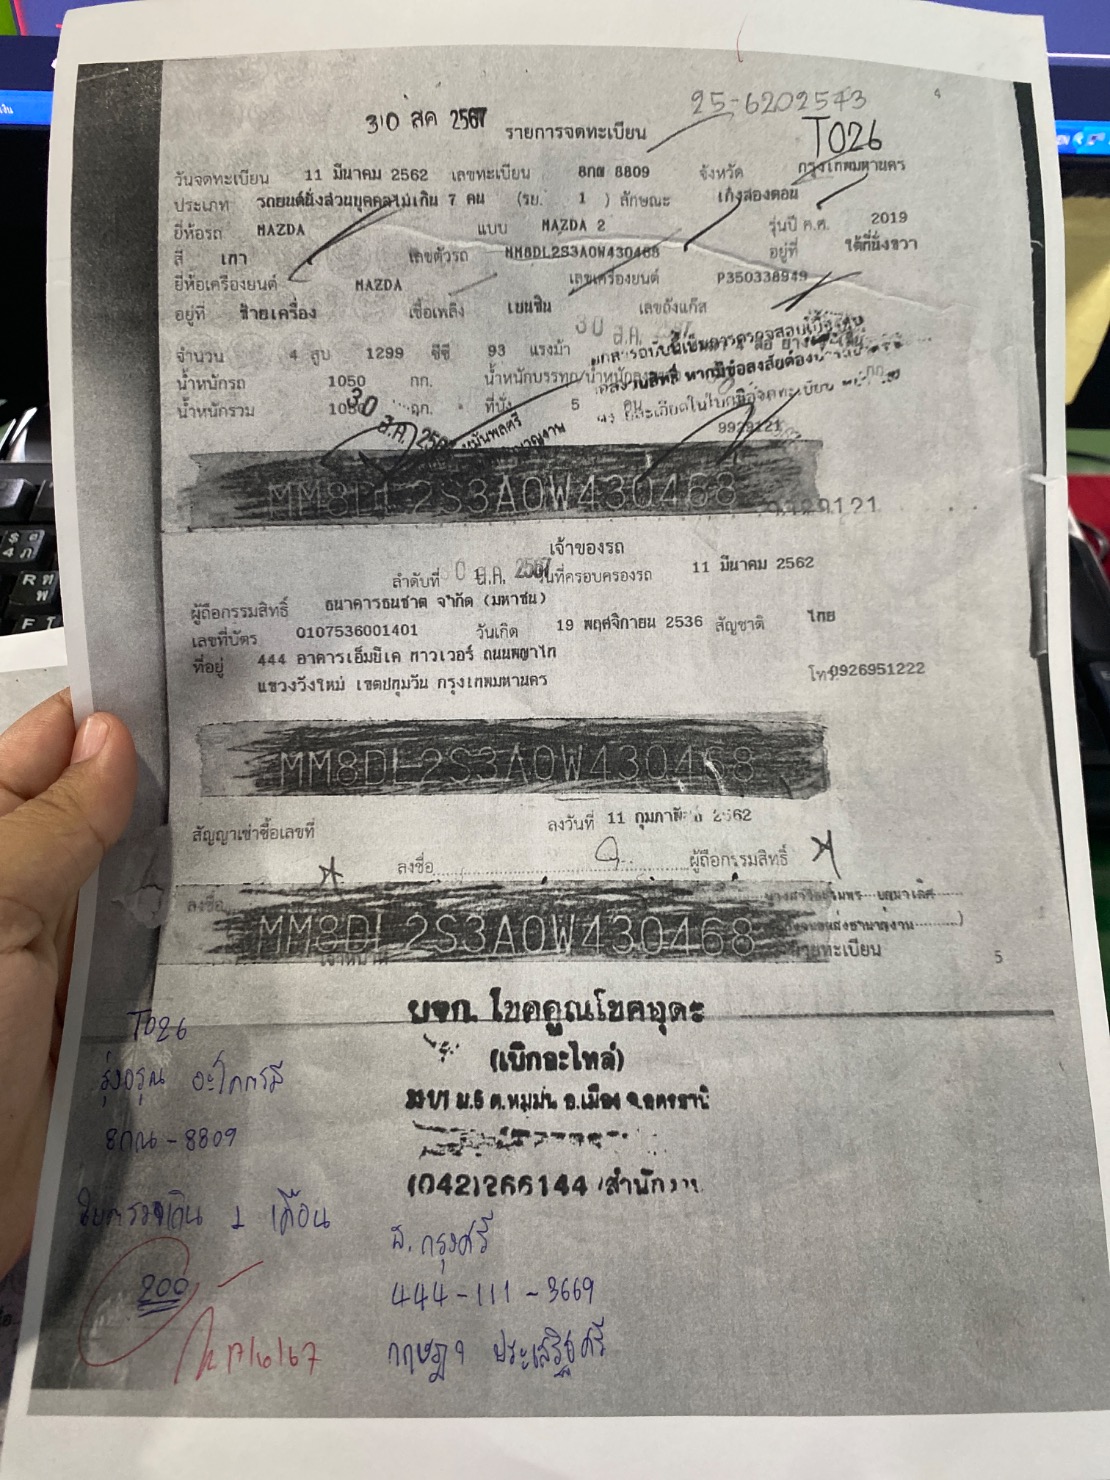 25-6202543
4
30 สค 2567 รายการจดทะเบียน
T026
วันจดทะเบียน 11 มีนาคม 2562 เลขทะเบียน 8กณ 8809 จังหวัด กรุงเทพมหานคร
ประเภท รถยนต์นั่งส่วนบุคคลไม่เกิน 7 คน (รย. 1 ) ลักษณะ เก๋งสองตอน
ยี่ห้อรถ MAZDA แบบ MAZDA 2 รุ่นปี ค.ศ. 2019
สี เทา เลขตัวรถ MM8DL2S3A0W430468 อยู่ที่ ใต้ที่นั่งขวา
ยี่ห้อเครื่องยนต์ MAZDA เลขเครื่องยนต์ P350338949
อยู่ที่ ซ้ายเครื่อง เชื้อเพลิง เบนซิน เลขถังแก๊ส
30 ส.ค.
จำนวน 4 สูบ 1299 ซีซี 93 แรงม้า
น้ำหนักรถ 1050 กก. น้ำหนักบรรทุก/น้ำหนักลง
น้ำหนักรวม 1050 กก. ที่นั่ง 5 คน
30 ส.ค.
9929121
MM8DL2S3A0W430468
9929121
เจ้าของรถ
ลำดับที่ วันที่ครอบครองรถ 11 มีนาคม 2562
ผู้ถือกรรมสิทธิ์ ธนาคารธนชาต จำกัด (มหาชน)
เลขที่บัตร 0107536001401 วันเกิด 19 พฤศจิกายน 2536 สัญชาติ ไทย
ที่อยู่ 444 อาคารเอ็มบีเค ทาวเวอร์ ถนนพญาไท
แขวงวังใหม่ เขตปทุมวัน กรุงเทพมหานคร โทร.0926951222
MM8DL2S3A0W430468
สัญญาเช่าซื้อเลขที่ ลงวันที่ 11 กุมภาพันธ์ 2562
ลงชื่อ ผู้ถือกรรมสิทธิ์
ลงชื่อ
MM8DL2S3A0W430468
นายทะเบียน
5
T026
รุ่งอรุณ
8กณ-8809
1 เดือน
200
17/6/67
หจก. โชคคูณโชคอุดะ
(เบิกอะไหล่)
ม.5 ต.หมูม่น อ.เมือง จ.อุดรธานี
(042)266144 (สำนักงาน
ธ. กรุงศรี
444-111-3669
กฤษฎา ประเสริฐศรี